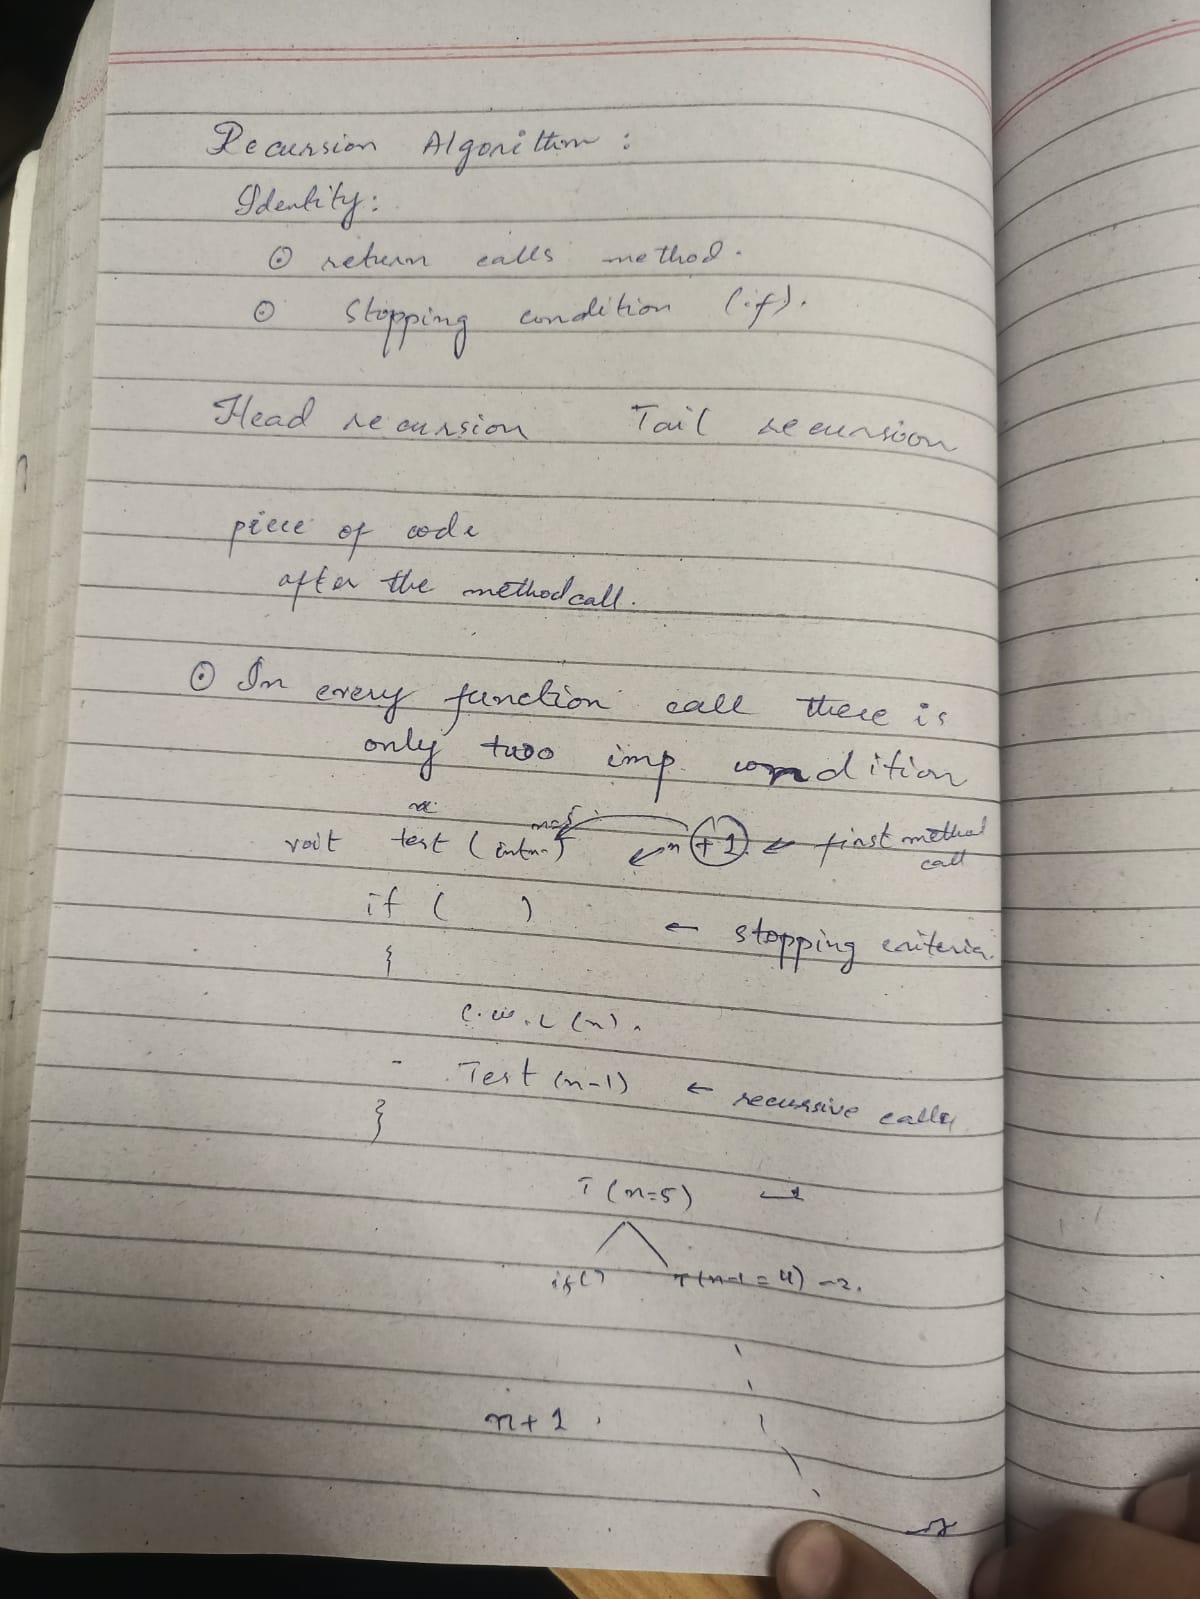 Recursion Algorithm :
Identity:
⊙ return calls method.
⊙ Stopping condition (if).
Head recursion Tail recursion
piece of code
after the method call.
⊙ In every function call there is
only two imp. condition
n=5
voit test (int n) n + 1 ← first method
call
if ( ) ← stopping criteria.
{
C.W.L (n).
Test (n-1) ← recursive calls
}
T (n=5) 1
if() T(n-1 = 4) -2.
n+1